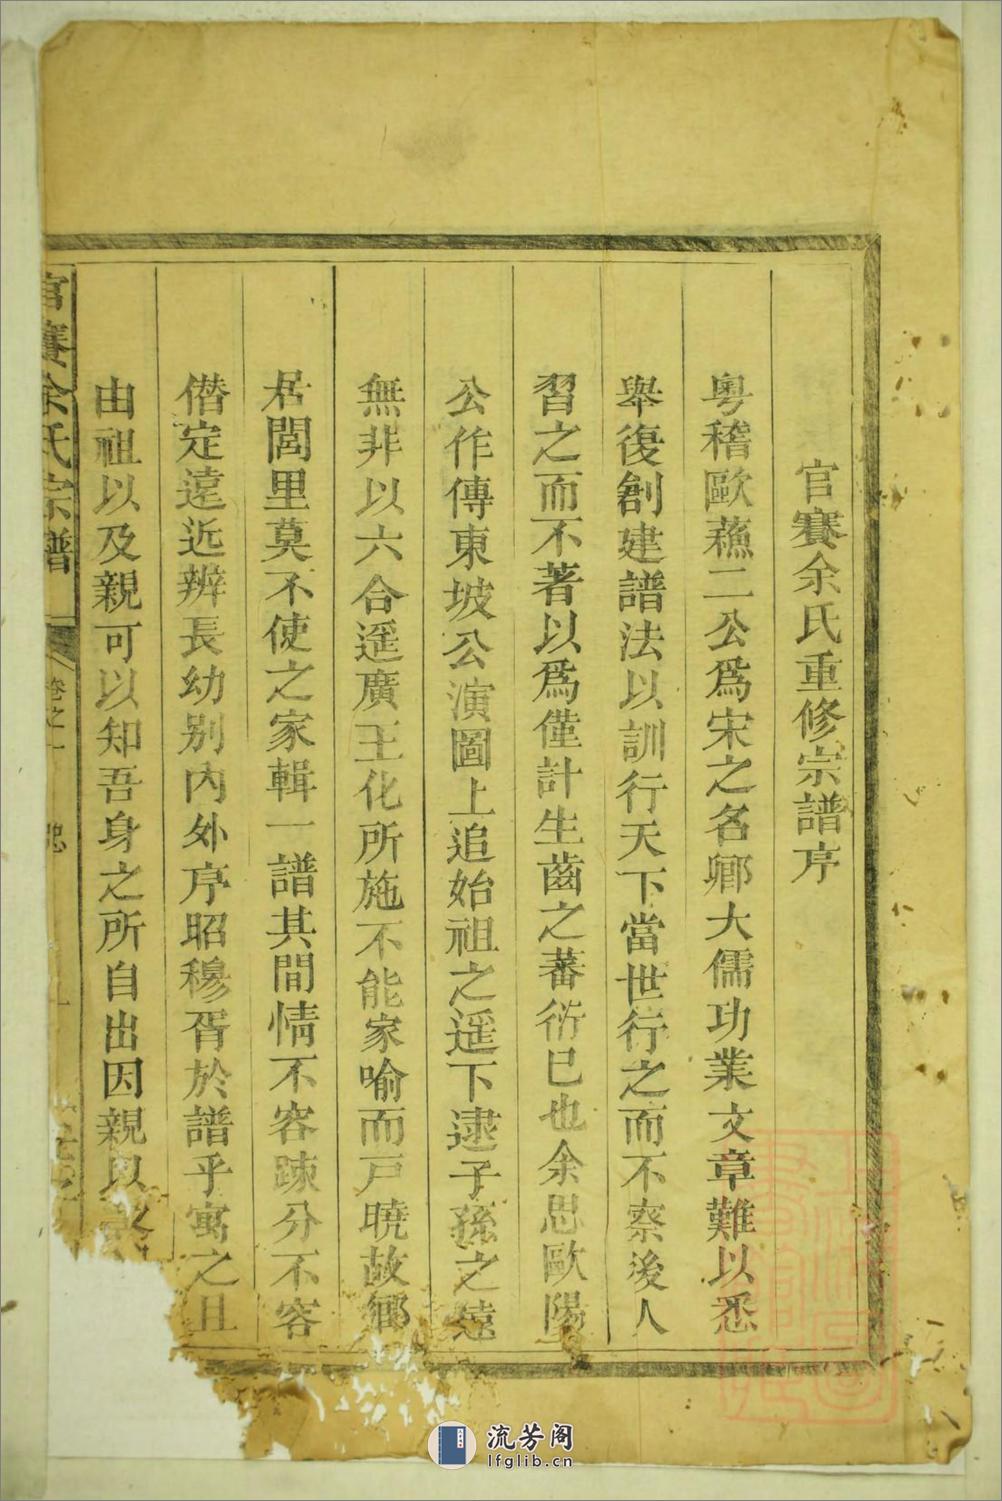 官賽余氏重修宗譜序
粤稽歐蘓二公爲宋之名卿大儒功業文章難以悉
舉復創建譜法以訓行天下當世行之而不察後人
習之而不著以爲僅計生齒之蕃衍已也余思歐陽
公作傳東坡公演圖上追始祖之遥下逮子孫之遠
無非以六合遥廣王化所施不能家喻而戸曉故鄉
居閭里莫不使之家輯一譜其間情不容踈分不容
僭定遠近辨長幼别内外序昭穆胥於譜乎寓之且
由祖以及親可以知吾身之所自出因親以
官賽余氏宗譜
卷之一
流芳阁
lfglib.cn